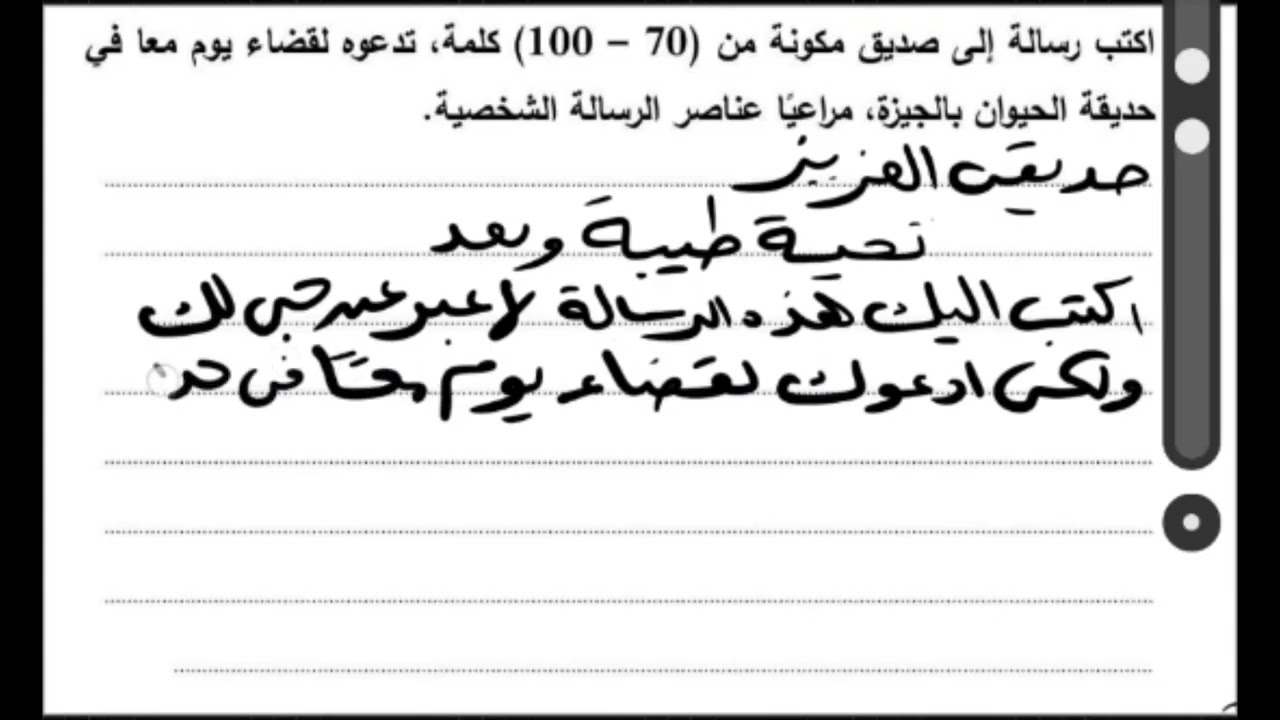 اكتب رسالة إلى صديق مكونة من (70 – 100) كلمة، تدعوه لقضاء يوم معا في
حديقة الحيوان بالجيزة، مراعيًا عناصر الرسالة الشخصية.
صديقى العزيز
تحية طيبة وبعد
اكتب اليك هذه الرسالة لاعبر عن حبى لك
ولكى ادعوك لقضاء يوم معًا فى حد